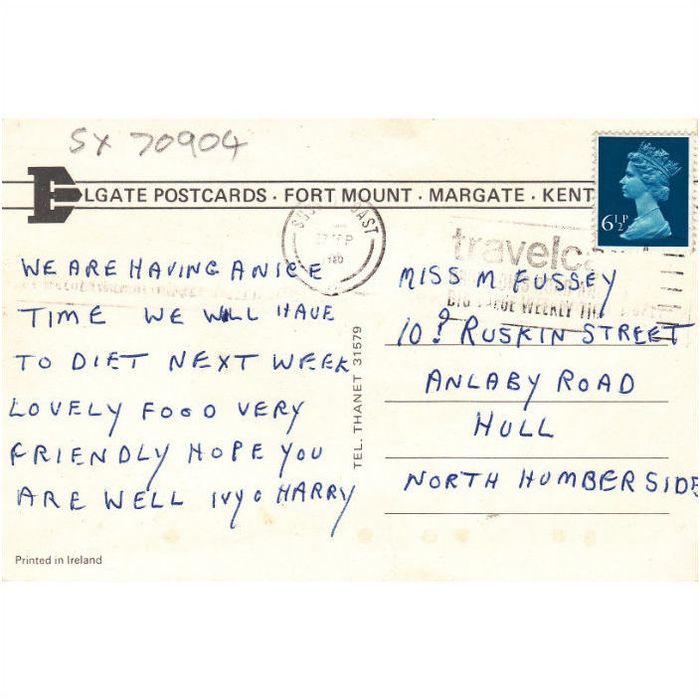 SX 70904
ELGATE POSTCARDS · FORT MOUNT · MARGATE · KENT
6½P
travelca
WE ARE HAVING A NICE
TIME WE WILL HAVE
TO DIET NEXT WEEK
LOVELY FOOD VERY
FRIENDLY HOPE YOU
ARE WELL IVY & HARRY
TEL. THANET 31579
MISS M FUSSEY
10 ? RUSKIN STREET
ANLABY ROAD
HULL
NORTH HUMBERSIDE
Printed in Ireland